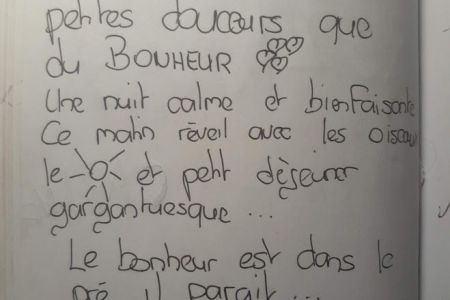 petites douceurs que
du BONHEUR
Une nuit calme et bienfaisante
Ce matin réveil avec les oiseau
le et petit déjeuner
gargantuesque ...
Le bonheur est dans le
pré il parait ...